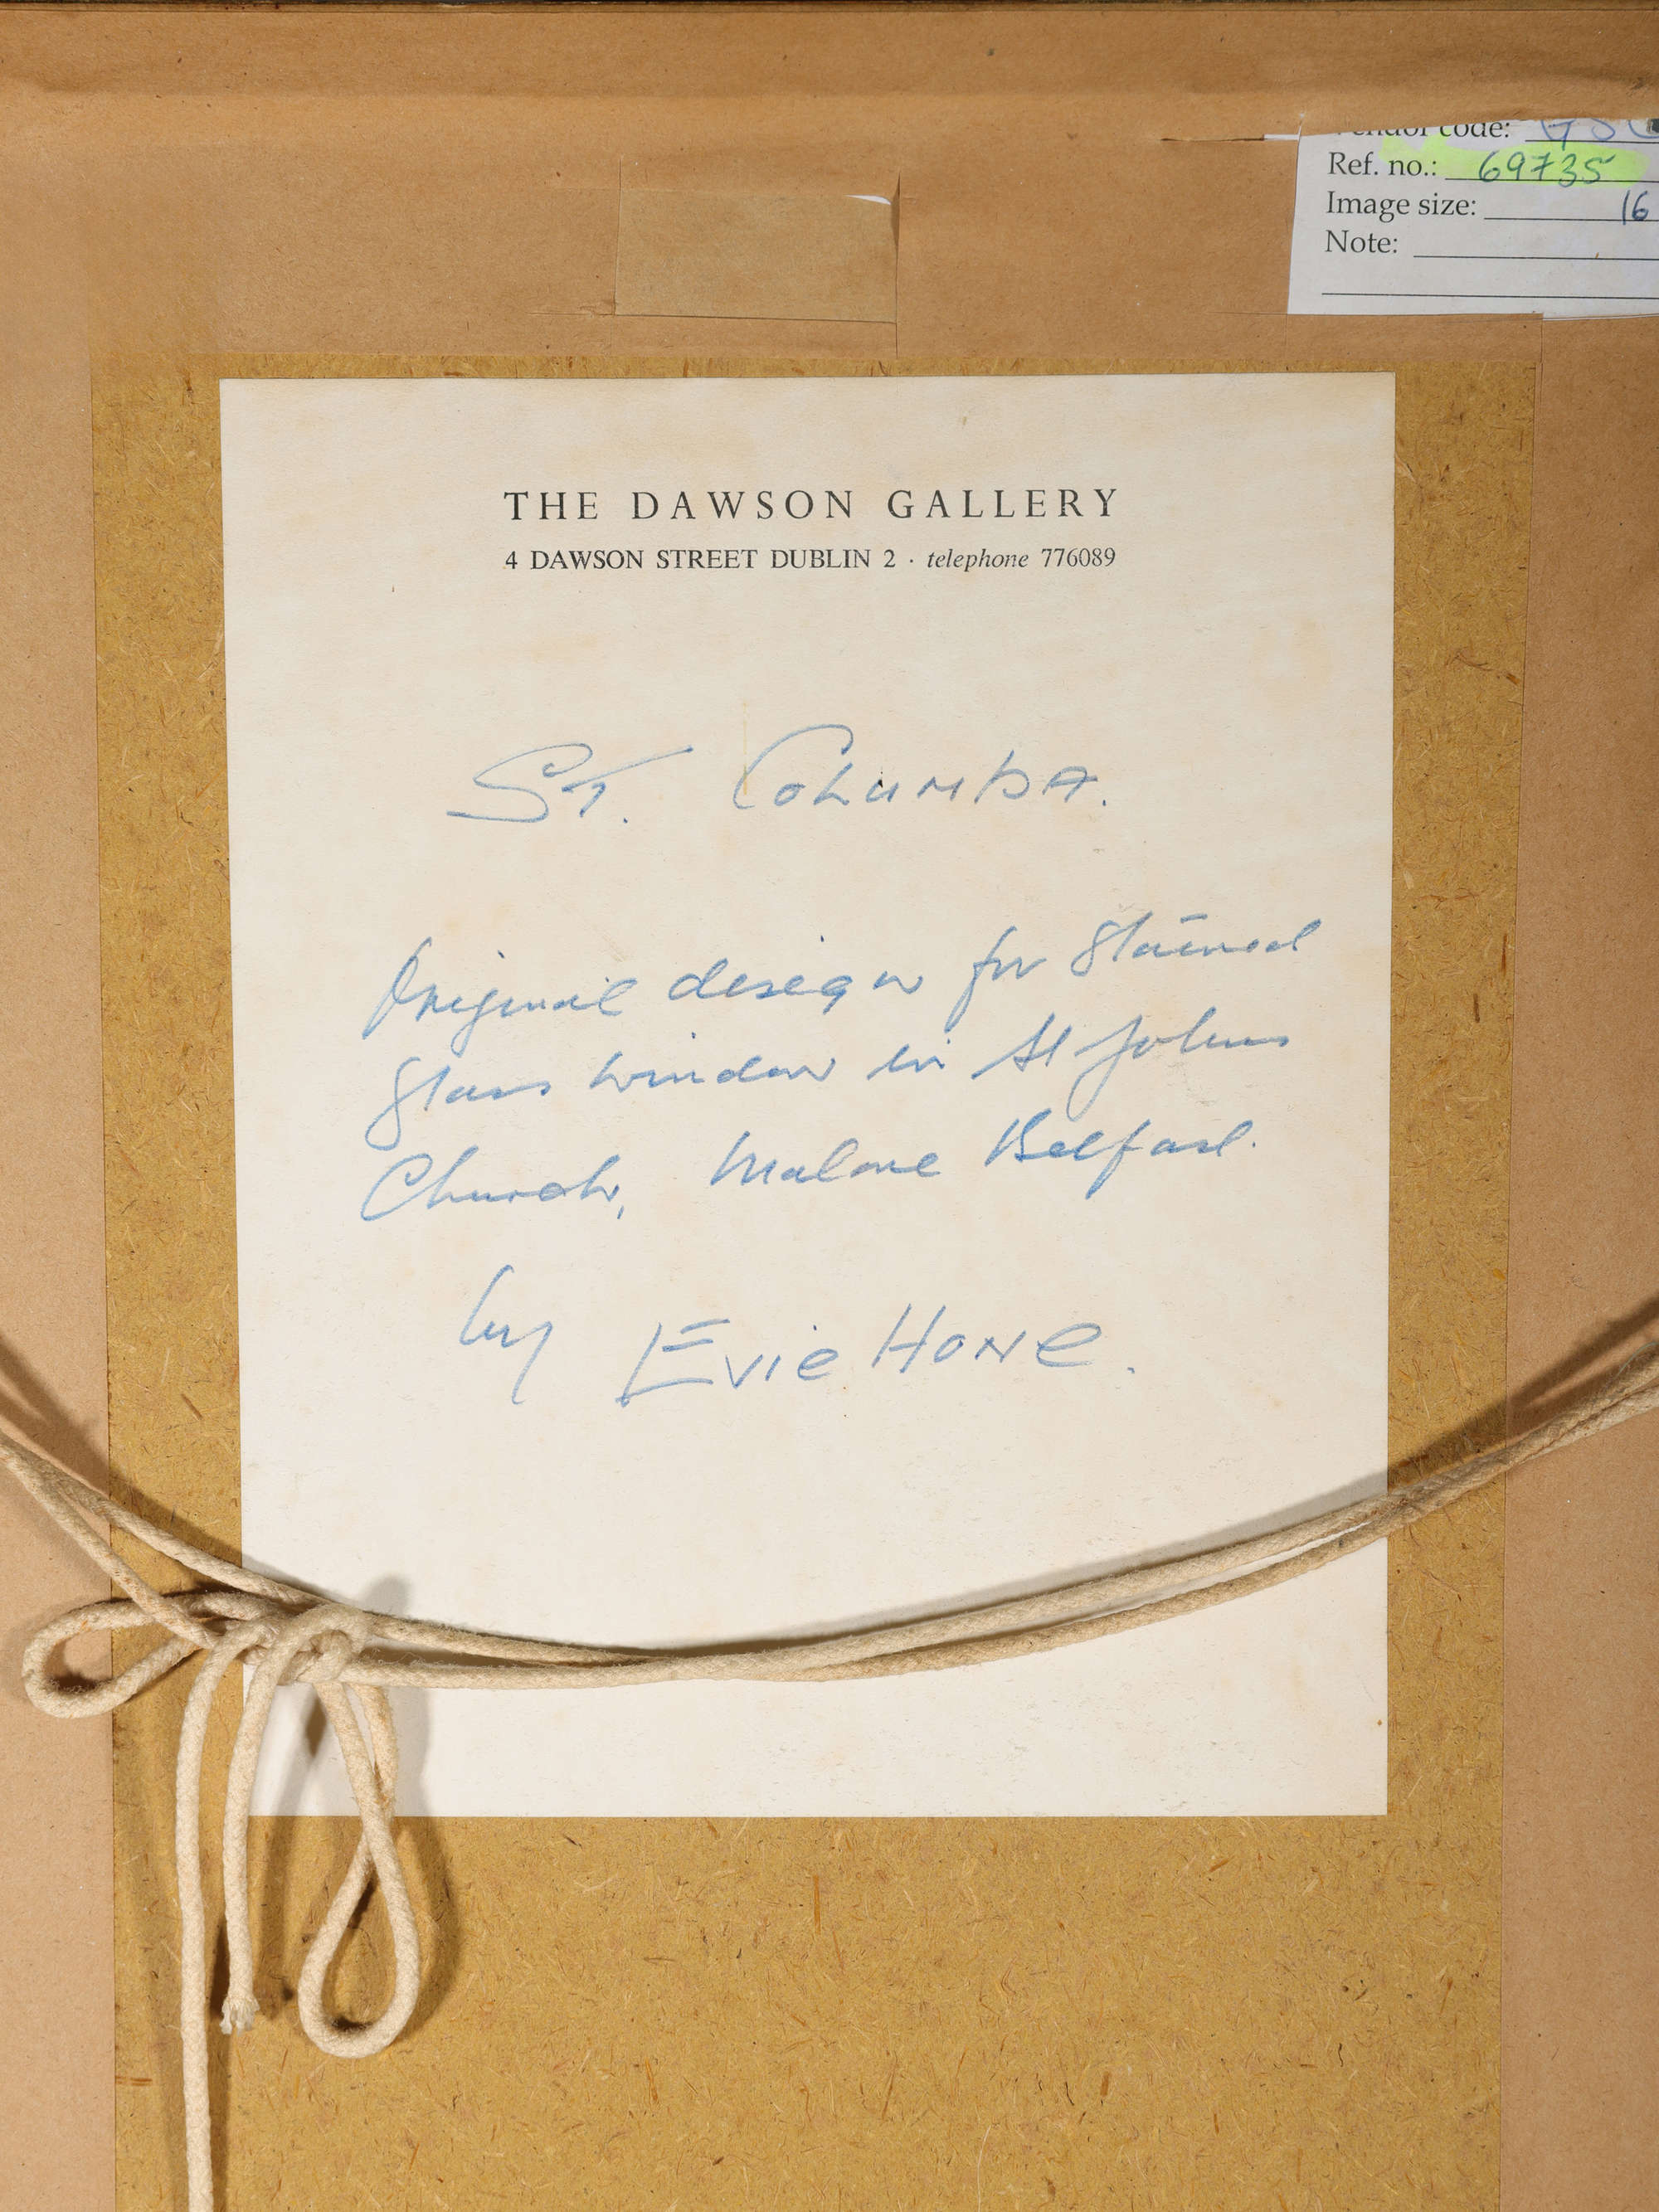 code:
Ref. no.: 69735
Image size: 16
Note:
THE DAWSON GALLERY
4 DAWSON STREET DUBLIN 2 · telephone 776089
St. Columba.
Original design for Stained
glass window in St Johns
Church, Malone Belfast.
by Evie Hone.